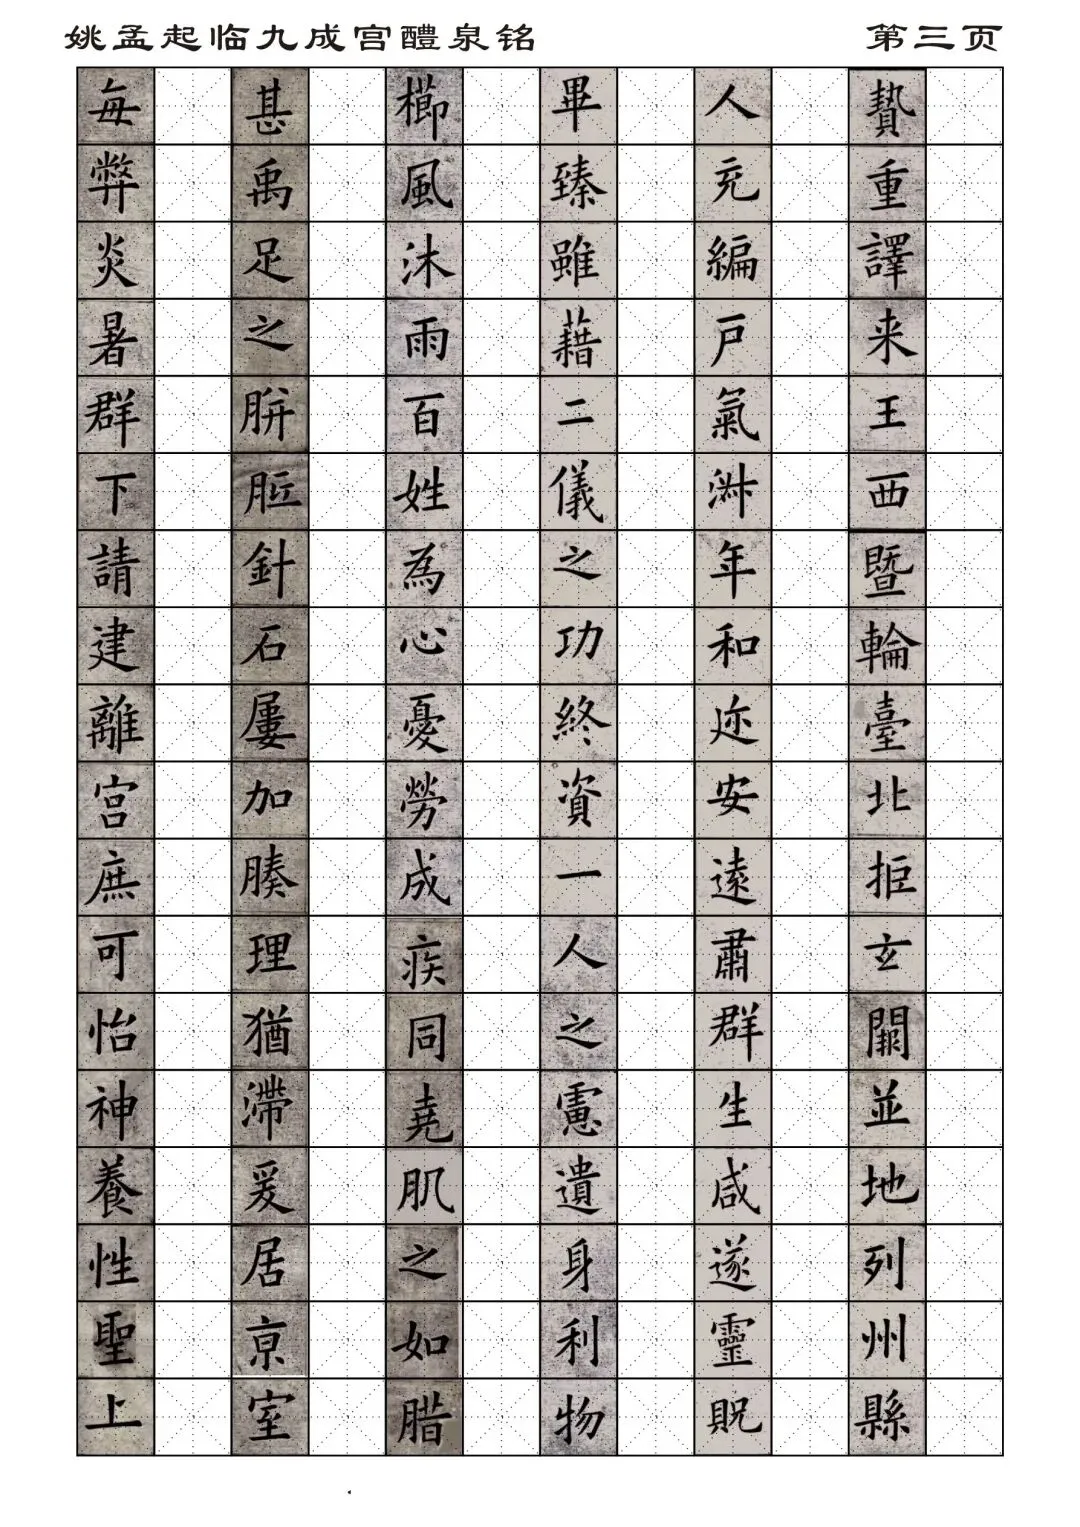 姚孟起临九成宫醴泉铭 第三页
贄重譯来王西暨輪臺北拒玄闕並地列州縣
人充編戶氣淋年和迩安遠肅群生咸遂靈貺
畢臻雖藉二儀之功終資一人之慮遺身利物
櫛風沐雨百姓為心憂勞成疾同堯肌之如腊
甚禹足之胼胝針石屢加腠理猶滯爰居京室
每弊炎暑群下請建離宮庶可怡神養性聖上